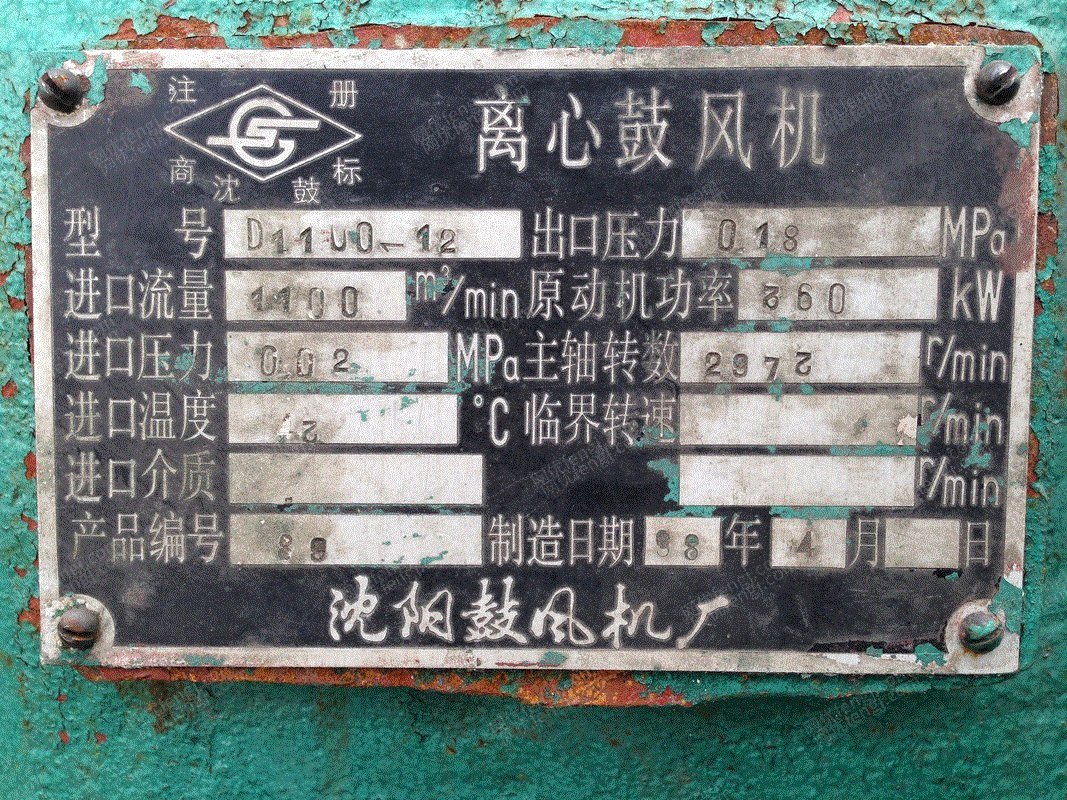 注册
商标
沈鼓
离心鼓风机
型号 D1100-12 出口压力 0.18 MPa
进口流量 1100 m³/min 原动机功率 360 kW
进口压力 0.02 MPa 主轴转数 2975 r/min
进口温度 42 °C 临界转速 r/min
进口介质 r/min
产品编号 89 制造日期 98 年 4 月 日
沈阳鼓风机厂